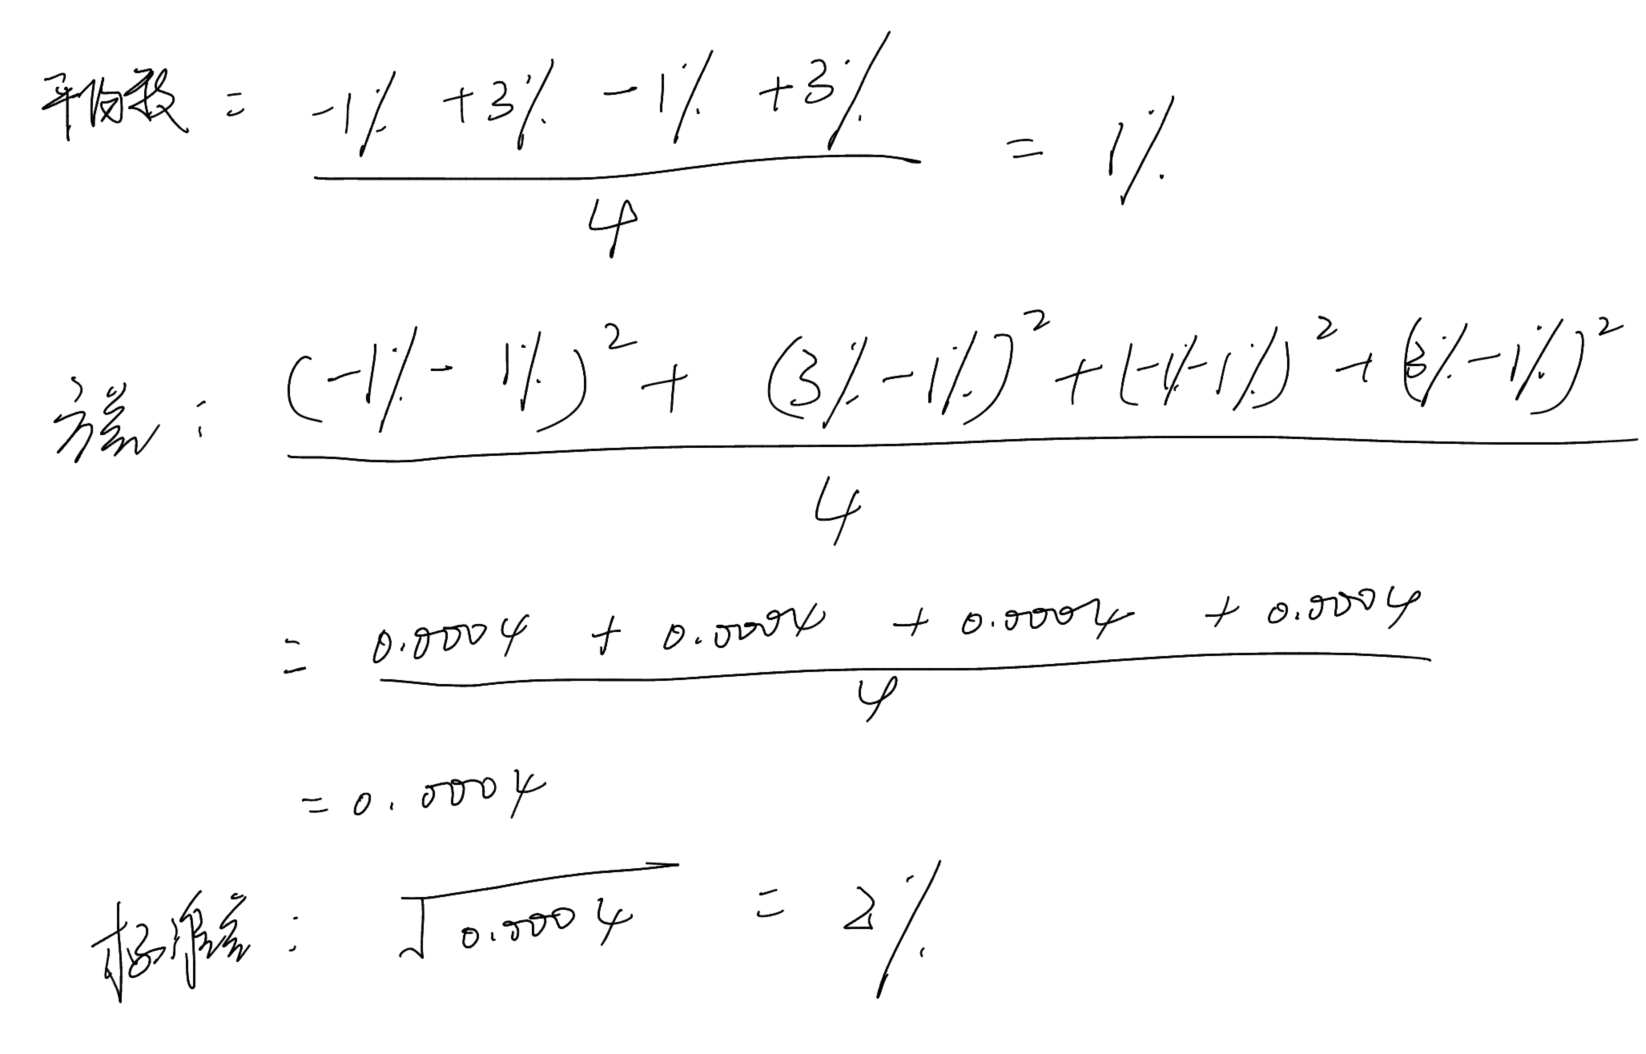 平均数 = (-1% + 3% - 1% + 3%) / 4 = 1%
方差: ((-1% - 1%)² + (3% - 1%)² + (-1% - 1%)² + (3% - 1%)²) / 4
= (0.0004 + 0.0004 + 0.0004 + 0.0004) / 4
= 0.0004
标准差: √0.0004 = 2%